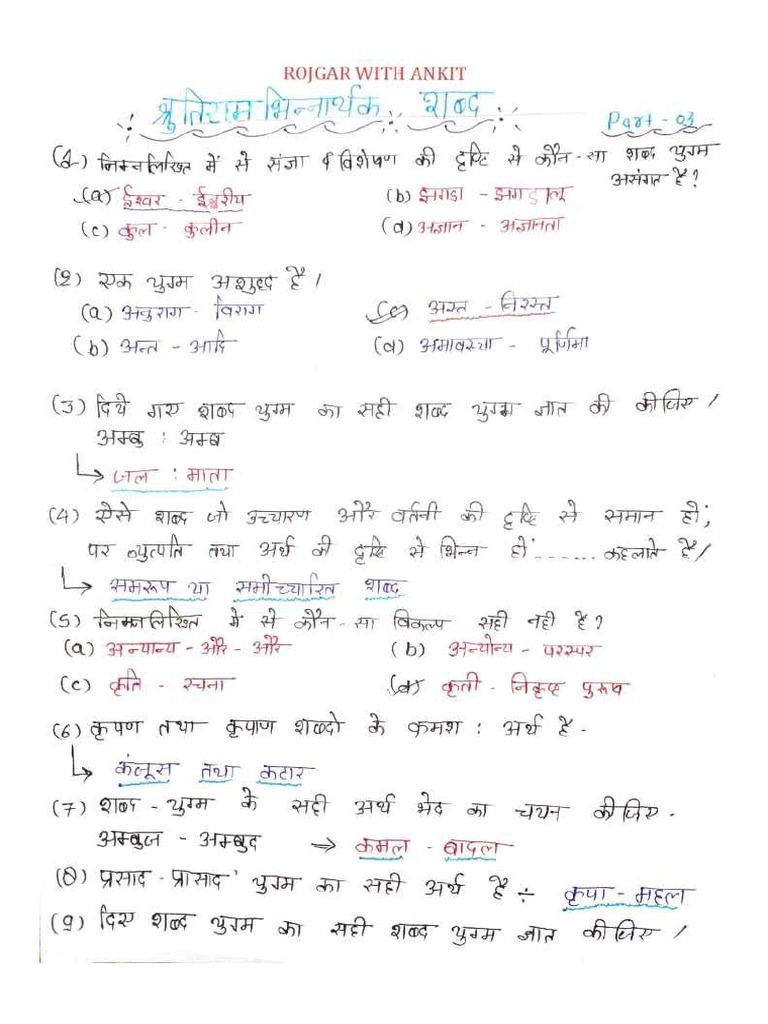 ROJGAR WITH ANKIT
श्रुतिसम भिन्नार्थक शब्द
Part - 03
(1) निम्नलिखित में से संज्ञा व विशेषण की दृष्टि से कौन-सा शब्द युग्म असंगत है?
(a) ईश्वर - ईश्वरीय (b) झगडा - झगडालू
(c) कुल - कुलीन (d) अज्ञान - अज्ञानता
(2) एक युग्म अशुध्द है।
(a) अनुराग - विराग (c) अस्त - निरस्त
(b) अन्त - आदि (d) अमावस्या - पूर्णिमा
(3) दिये गए शब्द युग्म का सही शब्द युग्म ज्ञात की कीजिए।
अम्बु : अम्ब
जल : माता
(4) ऐसे शब्द जो उच्चारण और वर्तनी की दृष्टि से समान हो;
पर व्युत्पति तथा अर्थ की दृष्टि से भिन्न हों....... कहलाते है।
समरूप या समोच्चारित शब्द
(5) निम्नलिखित में से कौन-सा विकल्प सही नही है?
(a) अन्यान्य - और - और (b) अन्योन्य - परस्पर
(c) कृति - रचना (d) कृती - निकृष्ट पुरुष
(6) कृपण तथा कृपाण शब्दो के कमश : अर्थ है -
कंजूस तथा कटार
(7) शब्द - युग्म के सही अर्थ भेद का चयन कीजिए -
अम्बुज - अम्बुद → कमल - बादल
(8) प्रसाद - प्रासाद' युग्म का सही अर्थ है ÷ कृपा - महल
(9) दिए शब्द युग्म का सही शब्द युग्म ज्ञात कीजिए।